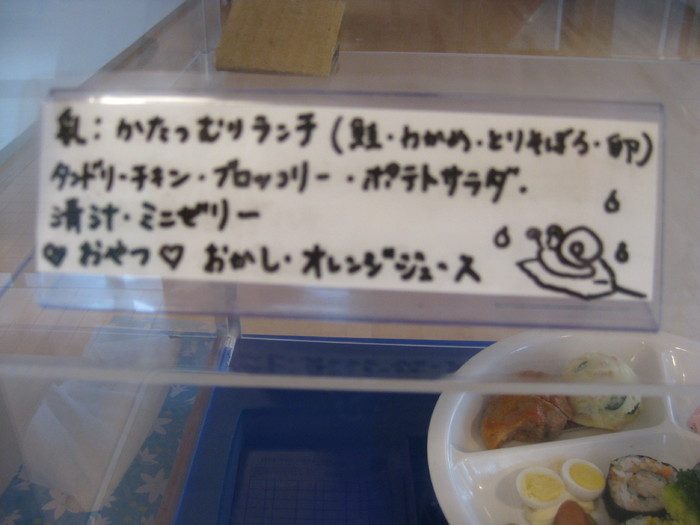 乳：かたつむりランチ（鮭・わかめ・とりそぼろ・卵）
タンドリーチキン・ブロッコリー・ポテトサラダ・
清汁・ミニゼリー
♡ おやつ ♡ おかし・オレンジジュース